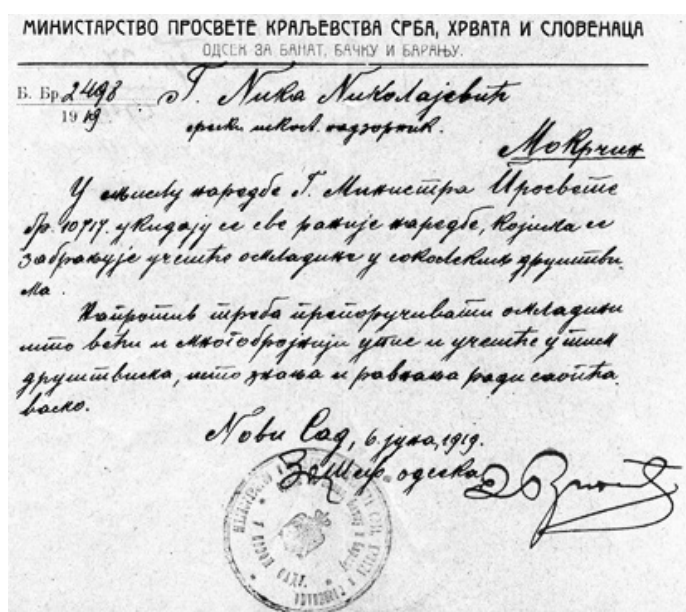 МИНИСТАРСТВО ПРОСВЕТЕ КРАЉЕВСТВА СРБА, ХРВАТА И СЛОВЕНАЦА
ОДСЕК ЗА БАНАТ, БАЧКУ И БАРАЊУ.
Б. Бр. 2498
1919
Г. Ника Николајевић
српски школ. надзорник.
Мокрин
У смислу наредбе Г. Министра Просвете
бр. 10717. укидају се све раније наредбе, којима се
забрањује учешће омладине у соколским друштви
ма.
Напротив треба препоручивати омладини
што већи и многобројнији упис и учешће у тим
друштвима, што знања и равнања ради саопћа
васмо.
Нови Сад, 6. јуна, 1919.
За шеф одсека